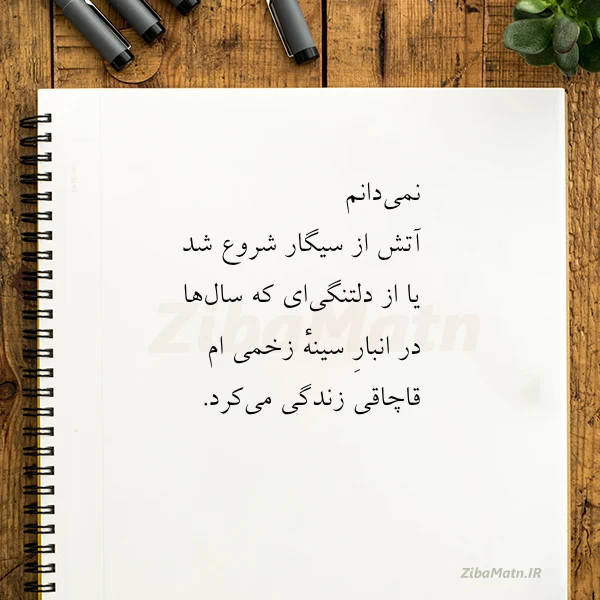 نمی‌دانم
آتش از سیگار شروع شد
یا از دلتنگی‌ای که سال‌ها
در انبارِ سینهٔ زخمی ام
قاچاقی زندگی می‌کرد.
ZibaMatn
ZibaMatn.IR